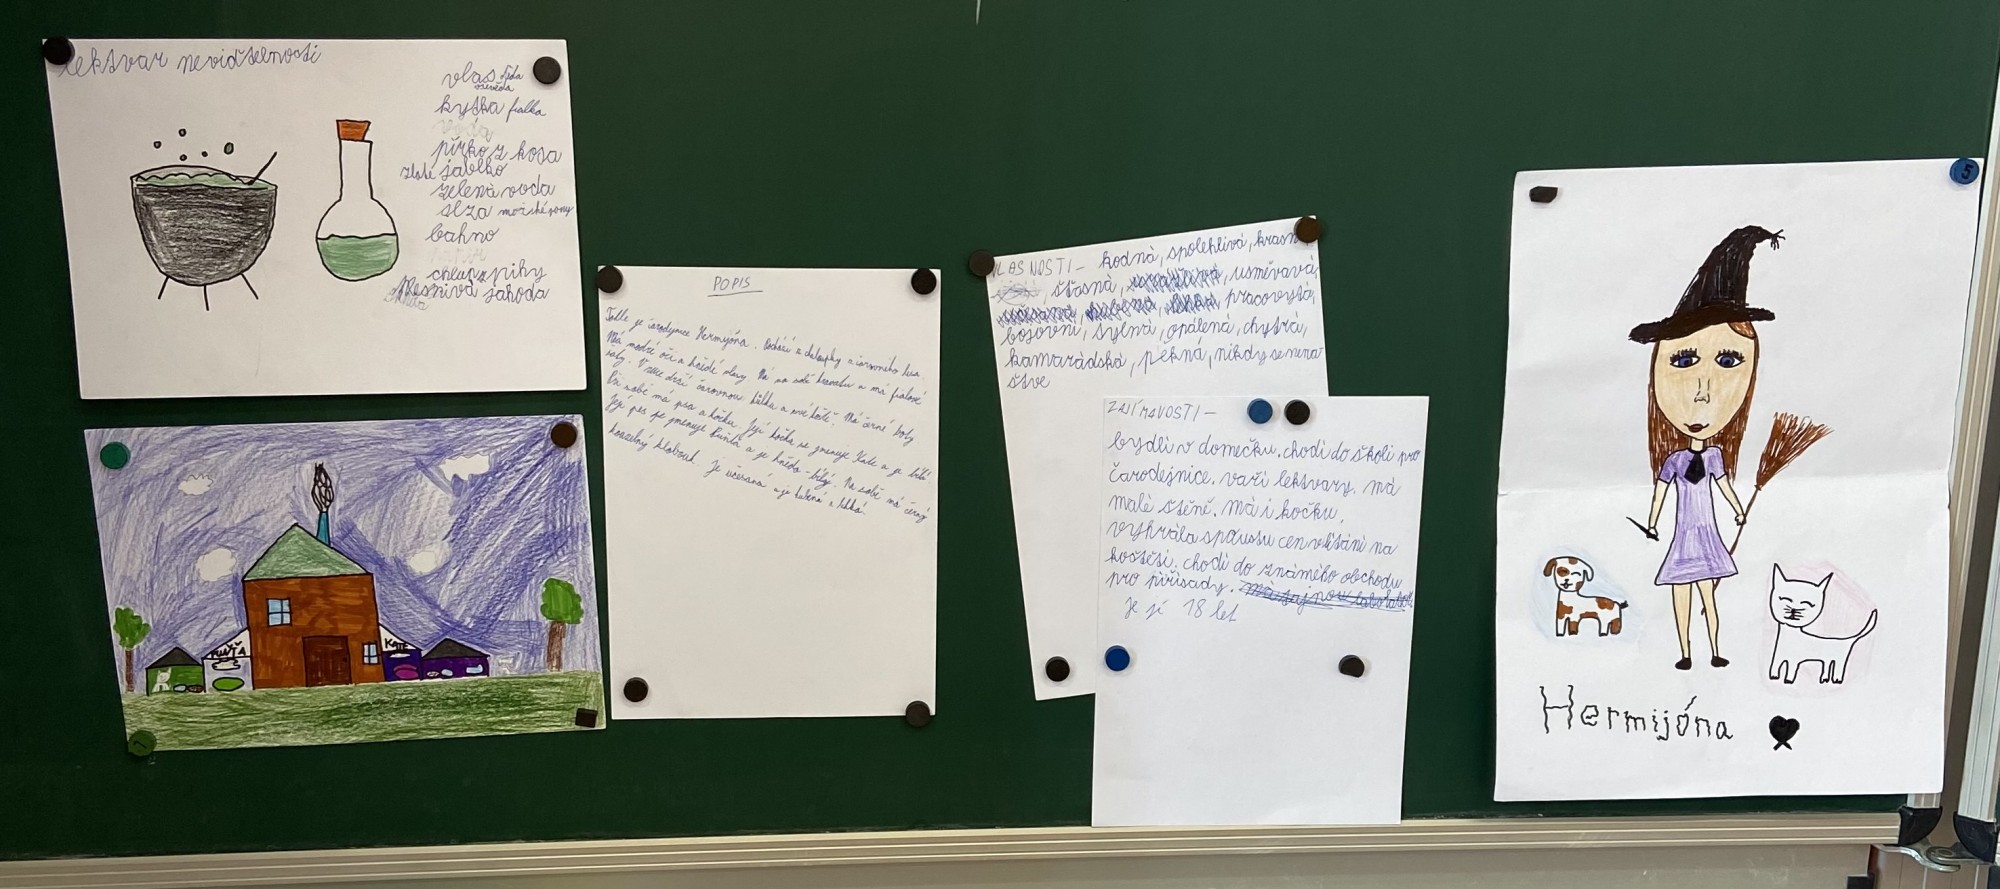 lektvar nevidtelnosti
vlas děda
vševěda
kytka fialka
voda
pírko z kosa
zlaté jablko
zelená voda
slza mořské panny
bahno
chlup z pihy
plesnivá jahoda
PUŇŤA
KATE
POPIS
Tohle je čarodejnice Hermijóna. Pochází z chaloupky z čarovného lesa.
Má modré oči a hňědé vlasy. Má na sobě kravatu a má fialové
šaty. V ruce drží čarovnou hůlku a své kóště. Má černé boty
Při sobě má psa a kočku. Její kočka se jmenuje Kate a je bílá.
Její pes se jmenuje Puňťa a je hňědo-bílý. Na sobě má černý
kouzelný klobouk. Je učesaná a je hubená a
VLASNOSTI - hodná, spolehlivá, krasn
, šťasná, , usměvavá,
pracovytá,
bojovní, sylná, opálená, chytrá,
kamarádská, pěkná, nikdy se nena-
štve
ZAJÍMAVOSTI -
bydlí v domečku. chodí do školi pro
čarodejnice. vaří lektvary. má
malé štěně. má i kočku.
vyhrála spoustu cen v lítání na
koštěti. chodí do známého obchodu
pro přísady.
Je jí 18 let
Hermijóna
5